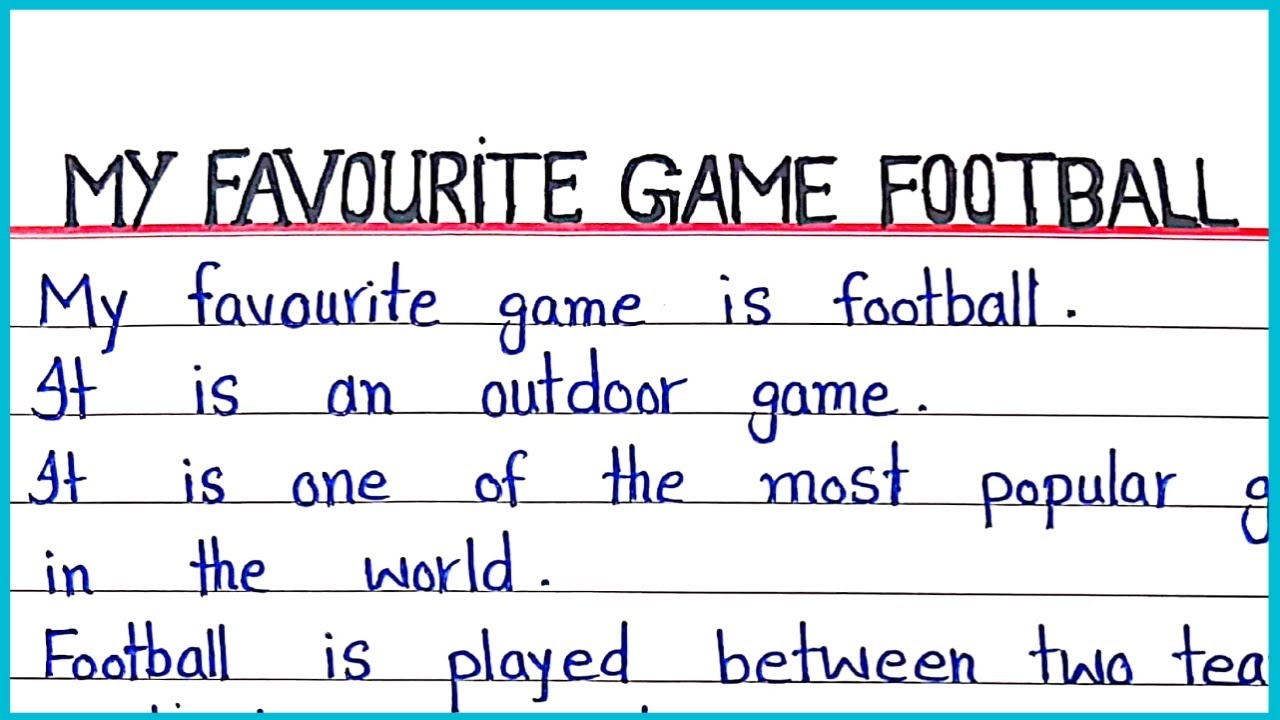 MY FAVOURITE GAME FOOTBALL
My favourite game is football.
It is an outdoor game.
It is one of the most popular
in the world.
Football is played between two